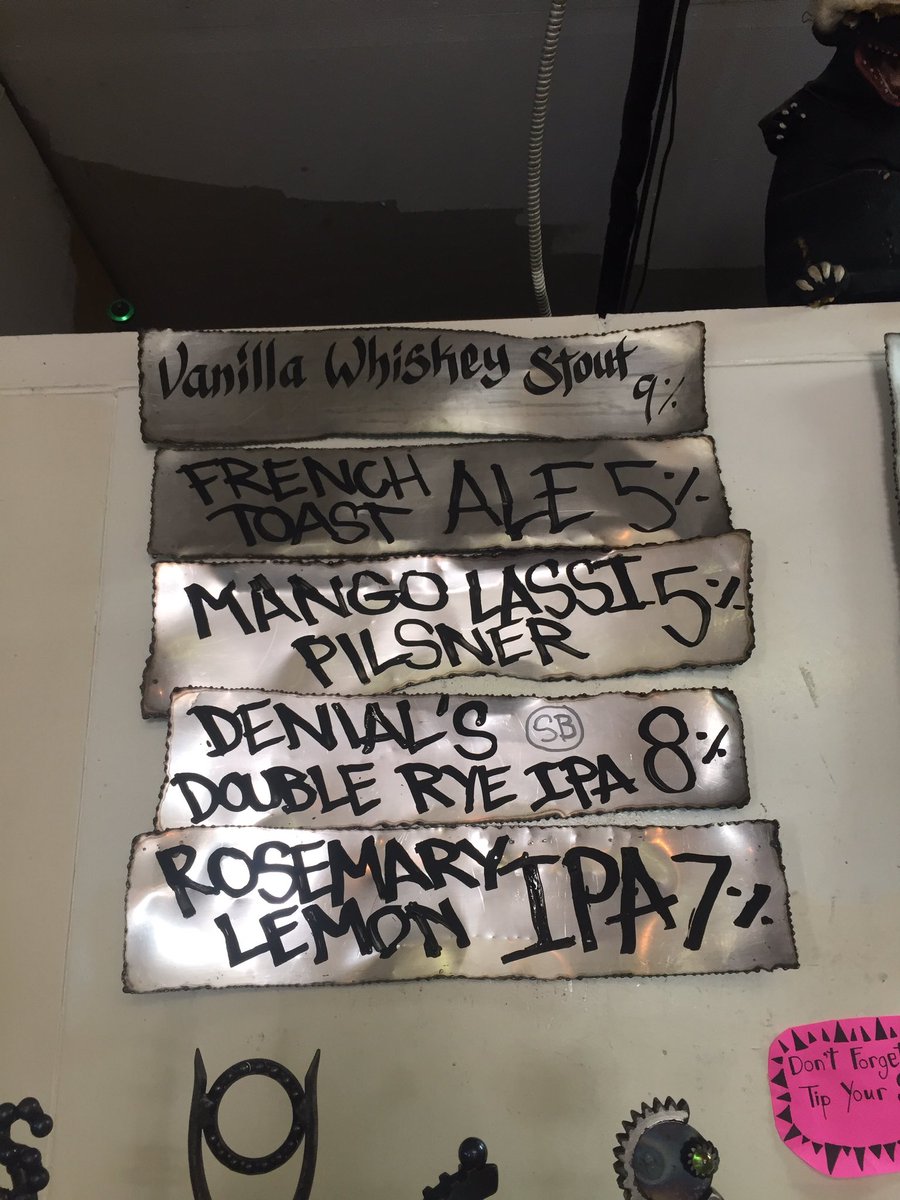 Vanilla Whiskey Stout 9%
FRENCH TOAST ALE 5%
MANGO LASSI 5%
PILSNER
DENIAL'S SB 8%
DOUBLE RYE IPA
ROSEMARY IPA 7%
LEMON
Don't Forget
Tip Your